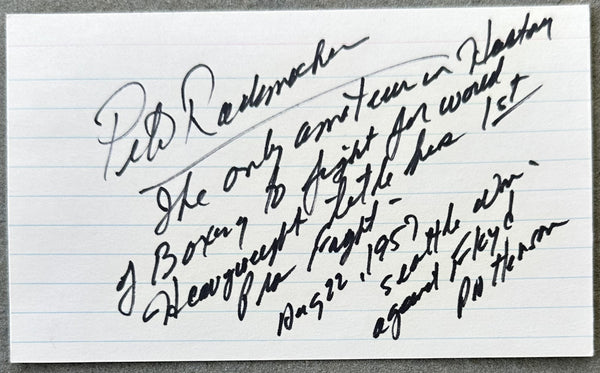 Pete Rademacher
The only amateur in History
of Boxing to fight for world
Heavyweight title his 1st
Pro Fight -
Aug 22, 1957
Seattle Wn.
against Floyd
Patterson